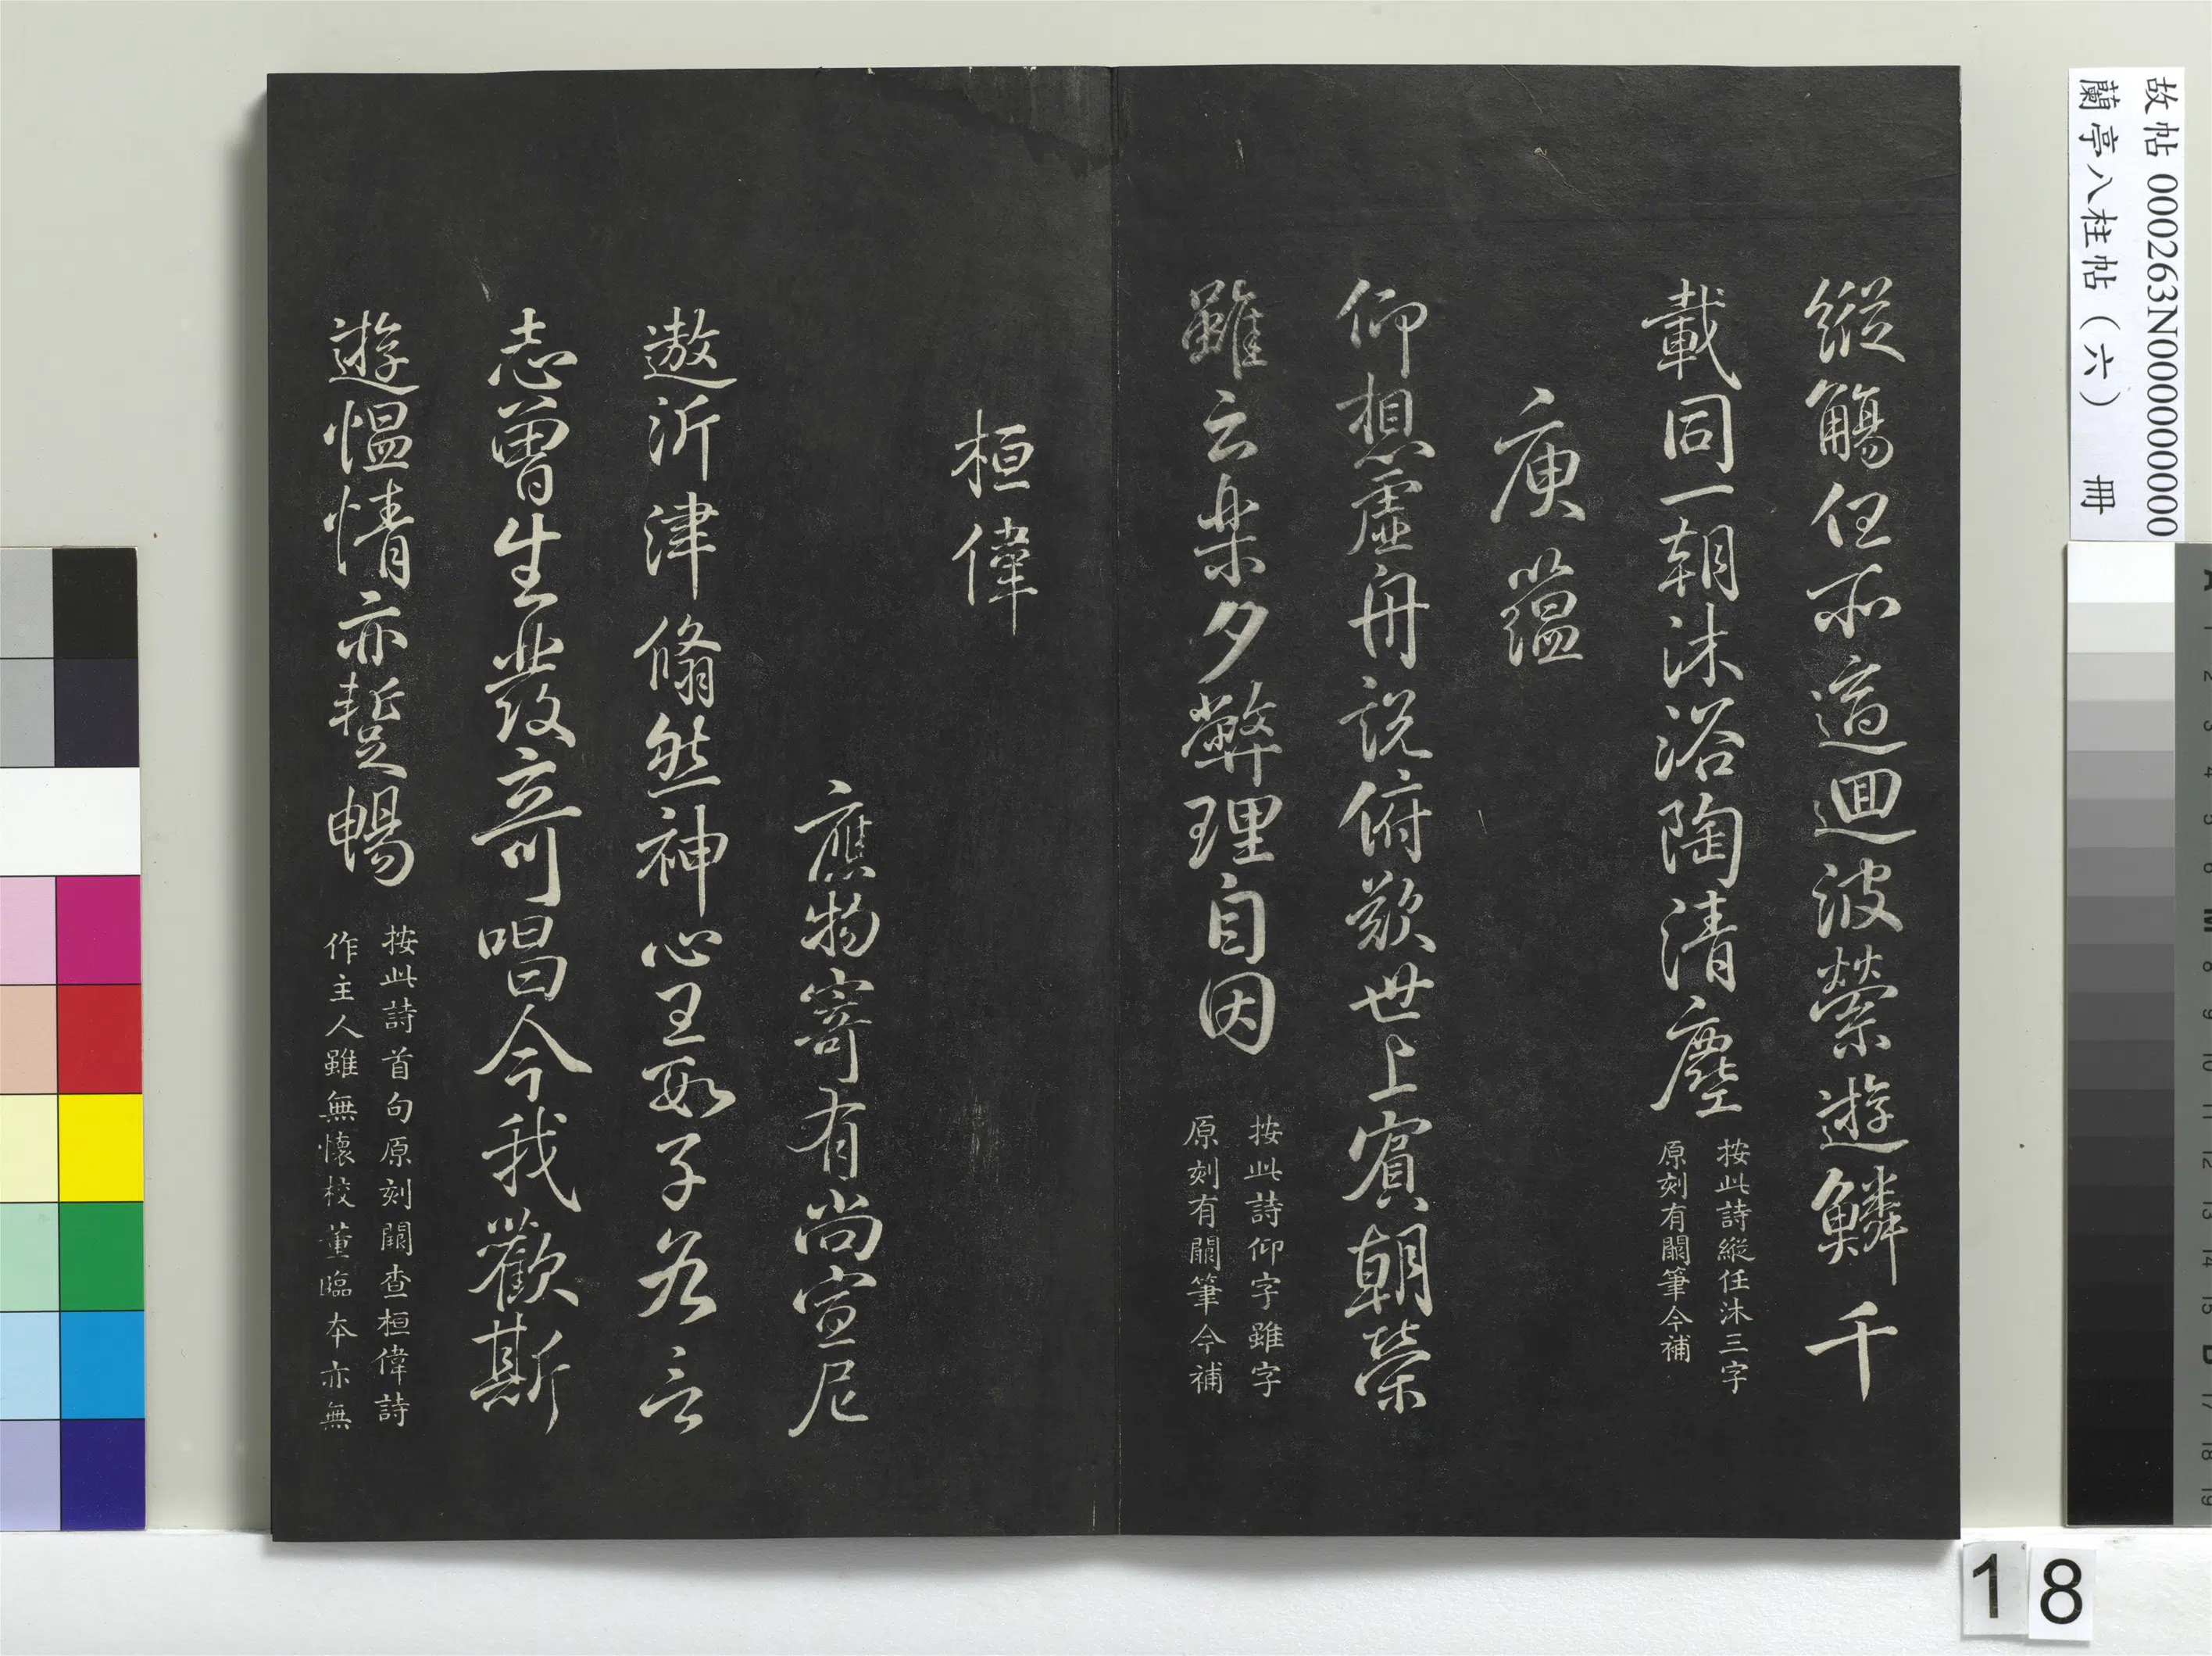 縱觴任所適迴波縈遊鱗千
載同一朝沐浴陶清塵
按此詩縱任沐三字
原刻有闕筆今補
庾蘊
仰想虛舟說俯歎世上賓朝榮
雖云樂夕弊理自因
按此詩仰字雖字
原刻有闕筆今補
桓偉
應物寄有尚宣尼
遨沂津翛然神心王數子各言
志曾生發竒唱今我歡斯
遊慍情亦蹔暢
按此詩首句原刻闕查桓偉詩
作主人雖無懷校董臨本亦無
故帖 000263N000000000
蘭亭八柱帖（六） 冊
18